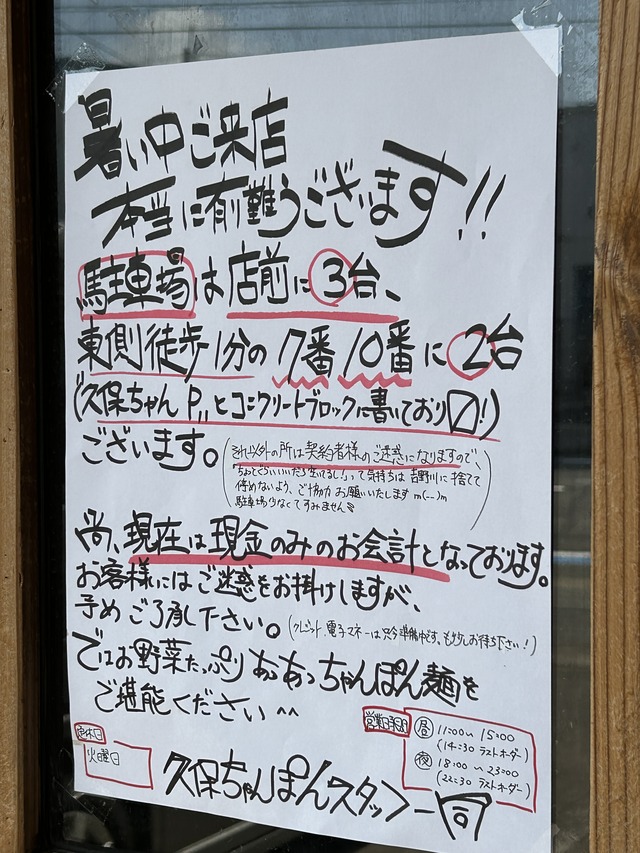 暑い中ご来店
本当に有難うございます!!
駐車場は店前に3台、
東側徒歩1分の7番10番に2台
("久保ちゃんP"とコンクリートブロックに書いており〼!)
ございます。
(それ以外の所は契約者様のご迷惑になりますので、
「ちょっとぐらいいいだろ空いてるし!」って気持ちは吉野川に捨てて
停めないよう、ご協力お願いいたします m(--)m
駐車場少なくてすみません)
尚、現在は現金のみのお会計となっております。
お客様にはご迷惑をお掛けしますが、
予めご了承下さい。(クレジット、電子マネーは只今準備中です、もう少しお待ち下さい!)
ではお野菜たっぷりあつあつちゃんぽん麺を
ご堪能ください^^
定休日
火曜日
営業時間
昼 11:00~15:00
(14:30 ラストオーダー)
夜 18:00~23:00
(22:30 ラストオーダー)
久保ちゃんぽんスタッフ一同